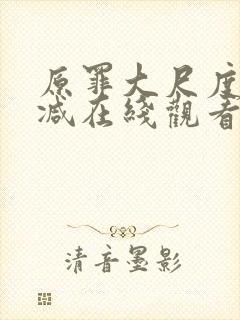 原罪大尺度
减在綫觀看
清音墨影